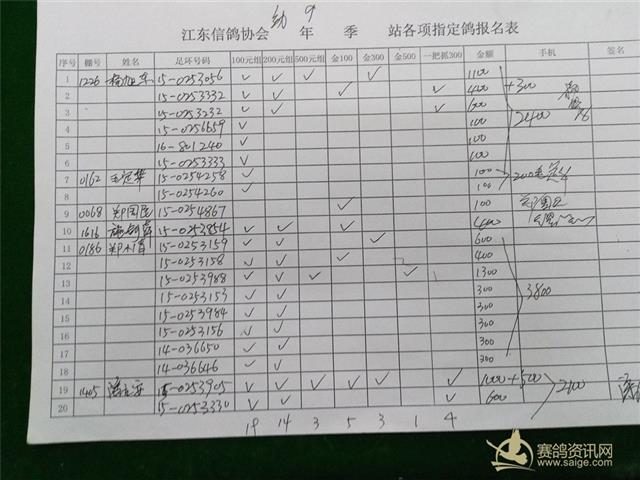 江东信鸽协会 幼9 年 季 站各项指定鸽报名表
序号 棚号 姓名 足环号码 100元组 200元组 500元组 金100 金300 金500 一把抓300 金额 手机 签名
1 1226 15-0253056 ✓ ✓ ✓ ✓ 1100
2 15-0253332 ✓ ✓ ✓ 400 +300
3 15-0253232 ✓ ✓ ✓ 600
4 15-0256659 ✓ 100 2400
5 16-801240 ✓ 100
6 15-0253333 ✓ 100
7 0162 15-0254258 ✓ 100 200
8 15-0254260 ✓ 100
9 0068 郑国民 15-0254867 ✓ 100
10 1616 15-0253854 ✓ ✓ ✓ 400
11 0186 15-0253159 ✓ ✓ ✓ 600
12 15-0253158 ✓ ✓ ✓ 400
13 15-0253988 ✓ ✓ ✓ ✓ 1300
14 15-0253153 ✓ ✓ 300 3800
15 15-0253984 ✓ ✓ 300
16 15-0253156 ✓ ✓ 300
17 14-036650 ✓ ✓ 300
18 14-036646 ✓ ✓ 300
19 1405 15-0253905 ✓ ✓ ✓ ✓ ✓ ✓ 1000+500
20 15-0253330 ✓ ✓ ✓ 600 2100
19 14 3 5 3 1 4
赛鸽资讯网
www.saige.com